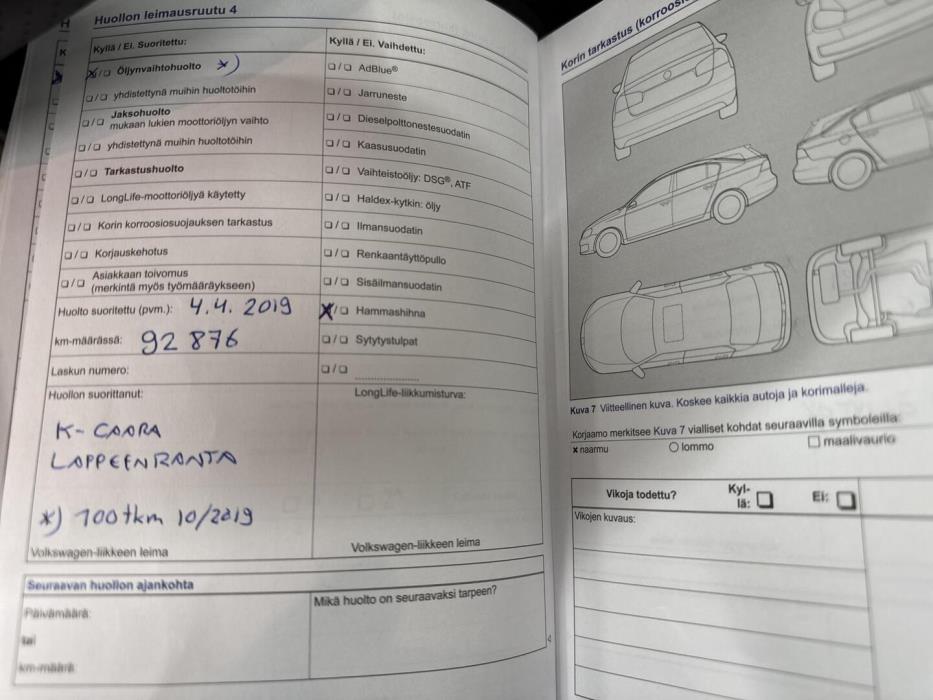 Huollon leimausruutu 4
Kyllä / Ei. Suoritettu:
☒/❏ Öljynvaihtohuolto *)
❏/❏ yhdistettynä muihin huoltotöihin
❏/❏ Jaksohuolto
mukaan lukien moottoriöljyn vaihto
❏/❏ yhdistettynä muihin huoltotöihin
❏/❏ Tarkastushuolto
❏/❏ LongLife-moottoriöljyä käytetty
❏/❏ Korin korroosiosuojauksen tarkastus
❏/❏ Korjauskehotus
❏/❏ Asiakkaan toivomus
(merkintä myös työmääräykseen)
Huolto suoritettu (pvm.): 4.4. 2019
km-määrässä: 92 876
Laskun numero:
Huollon suorittanut:
K-CAARA
LAPPEENRANTA
*) 100tkm 10/2019
Volkswagen-liikkeen leima
Kyllä / Ei. Vaihdettu:
❏/❏ AdBlue®
❏/❏ Jarruneste
❏/❏ Dieselpolttonestesuodatin
❏/❏ Kaasusuodatin
❏/❏ Vaihteistoöljy: DSG®, ATF
❏/❏ Haldex-kytkin: öljy
❏/❏ Ilmansuodatin
❏/❏ Renkaantäyttöpullo
❏/❏ Sisäilmansuodatin
☒/❏ Hammashihna
❏/❏ Sytytystulpat
❏/❏ ....................
LongLife-liikkumisturva:
Volkswagen-liikkeen leima
Seuraavan huollon ajankohta
Päivämäärä:
tai
km-määrä:
Mikä huolto on seuraavaksi tarpeen?
4
Korin tarkastus (korroosi
Kuva 7 Viitteellinen kuva. Koskee kaikkia autoja ja korimalleja.
Korjaamo merkitsee Kuva 7 vialliset kohdat seuraavilla symboleilla:
x naarmu ○ lommo □ maalivaurio
Vikoja todettu? Kyl-
lä: ❏ Ei: ❏
Vikojen kuvaus: